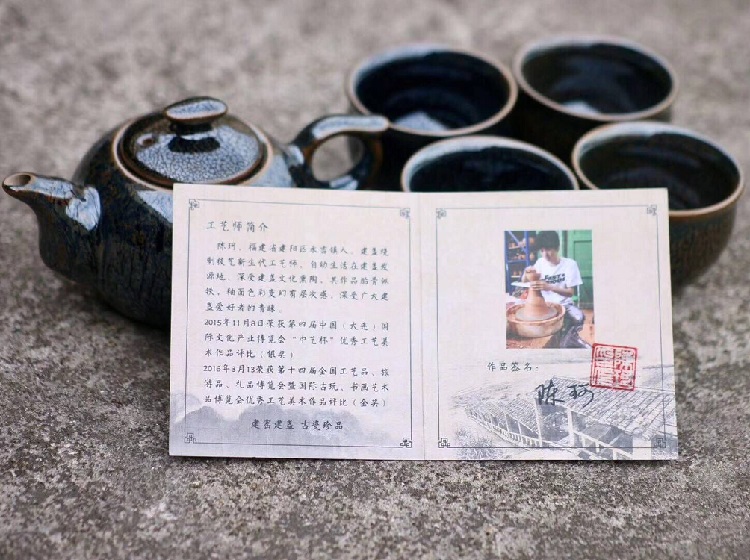 工艺师简介
陈珂,福建省建阳区水吉镇人,建盏烧
制技艺新生代工艺师。自幼生活在建盏发
源地,深受建盏文化熏陶。其作品胎骨似
铁,釉面色彩变幻有层次感,深受广大建
盏爱好者的青睐。
2015年11月8日荣获第四届中国(大连)国
际文化产业博览会“中艺杯”优秀工艺美
术作品评比(银奖)
2016年8月13荣获第十四届全国工艺品、旅
游品、礼品博览会暨国际古玩、书画艺术
品博览会优秀工艺美术作品评比(金奖)
建窑建盏 古瓷珍品
作品签名:
陈珂